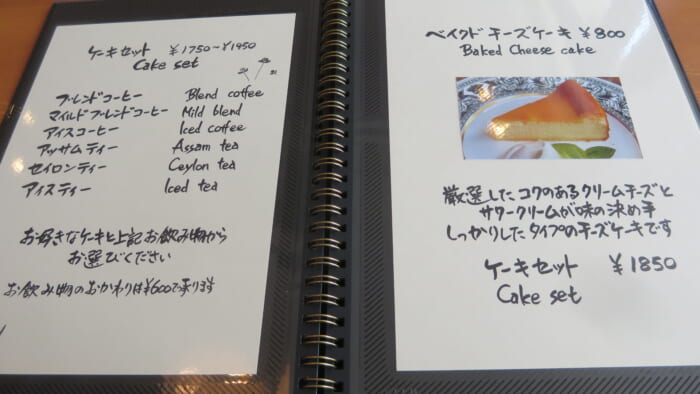 ケーキセット ¥1750~¥1950
Cake set
ブレンドコーヒー Blend coffee
マイルドブレンドコーヒー Mild blend
アイスコーヒー Iced coffee
アッサムティー Assam tea
セイロンティー Ceylon tea
アイスティー Iced tea
お好きなケーキと上記お飲み物から
お選びください
お飲み物のおかわりは¥600で承ります
ベイクドチーズケーキ ¥800
Baked Cheese cake
厳選したコクのあるクリームチーズと
サワークリームが味の決め手
しっかりしたタイプのチーズケーキです
ケーキセット ¥1850
Cake set